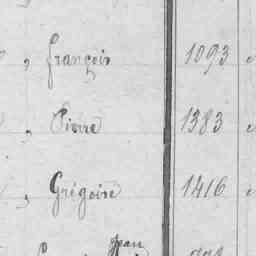 , François 1093
, Pierre 1383
, Grégoire 1416
Jean